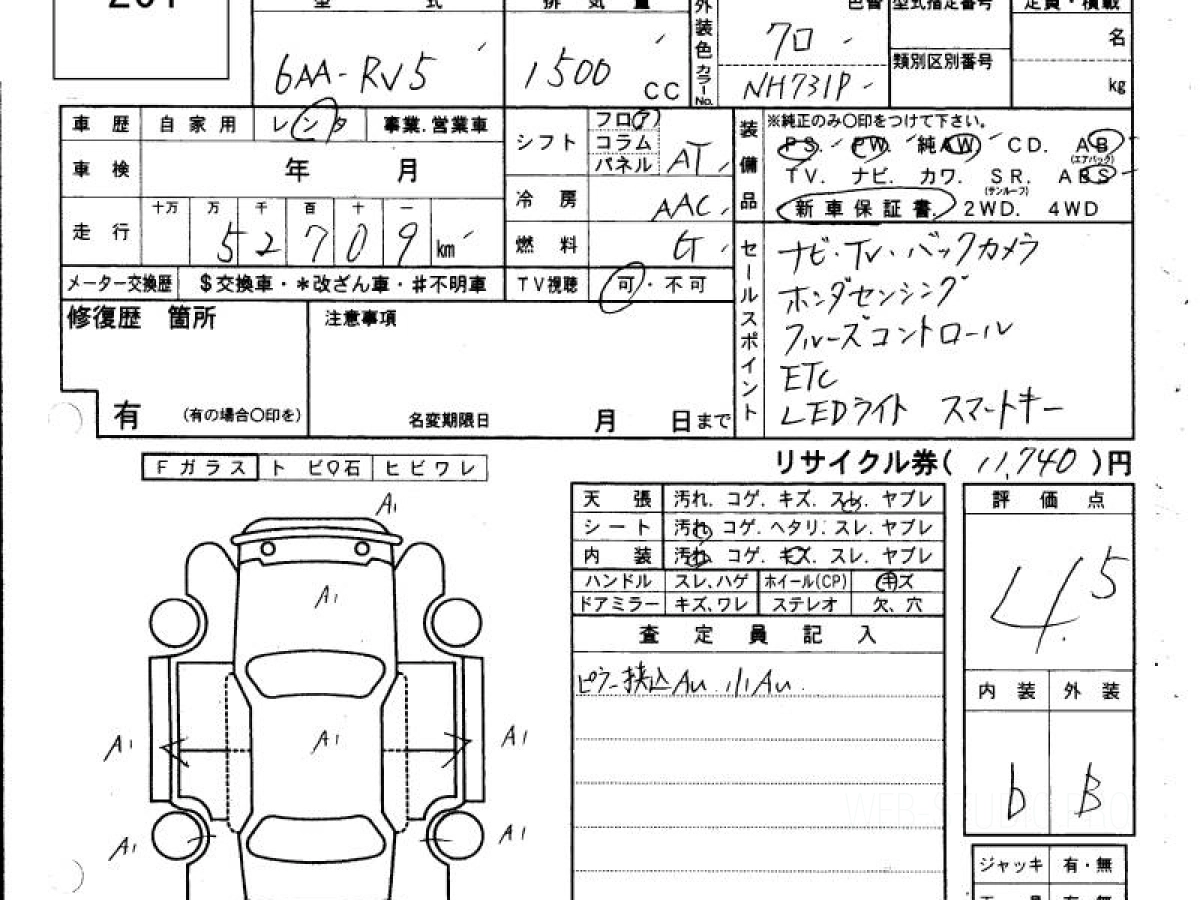 201
型 式
6AA-RV5
排 気 量
1500
CC
外装色
カラーNo.
色替
クロ
NH731P
型式指定番号
類別区別番号
定員・積載
名
kg
車 歴 自 家 用 レ ン タ 事業.営業車
車 検 年 月
走 行 十万 万 千 百 十 一
5 2 7 0 9 km
メーター交換歴 $交換車・*改ざん車・♯不明車
シフト フロア コラム パネル AT
冷 房 AAC
燃 料 G
TV視聴 可・不可
装備品
※純正のみ○印をつけて下さい。
PS. PW. 純AW CD. AB
(エアバック)
TV. ナビ. カワ. SR. ABS
(サンルーフ)
新車保証書. 2WD. 4WD
セールスポイント
ナビ・TV・バックカメラ
ホンダセンシング
クルーズコントロール
ETC
LEDライト スマートキー
修復歴 箇所
有 (有の場合○印を)
注意事項
名変期限日 月 日まで
リサイクル券( 11,740 )円
Fガラス ト ビ石 ヒビワレ
A1
A1
A1
A1
A1
A1
A1
天 張 汚れ. コゲ. キズ. スレ. ヤブレ
シート 汚れ コゲ. ヘタリ. スレ. ヤブレ
内 装 汚れ コゲ. キズ. スレ. ヤブレ
ハンドル スレ、ハゲ ホイール(CP) キズ
ドアミラー キズ、ワレ ステレオ 欠、穴
査 定 員 記 入
ピラー挟込AU 小AU
評 価 点
4.5
内 装 外 装
b B
ジャッキ 有・無